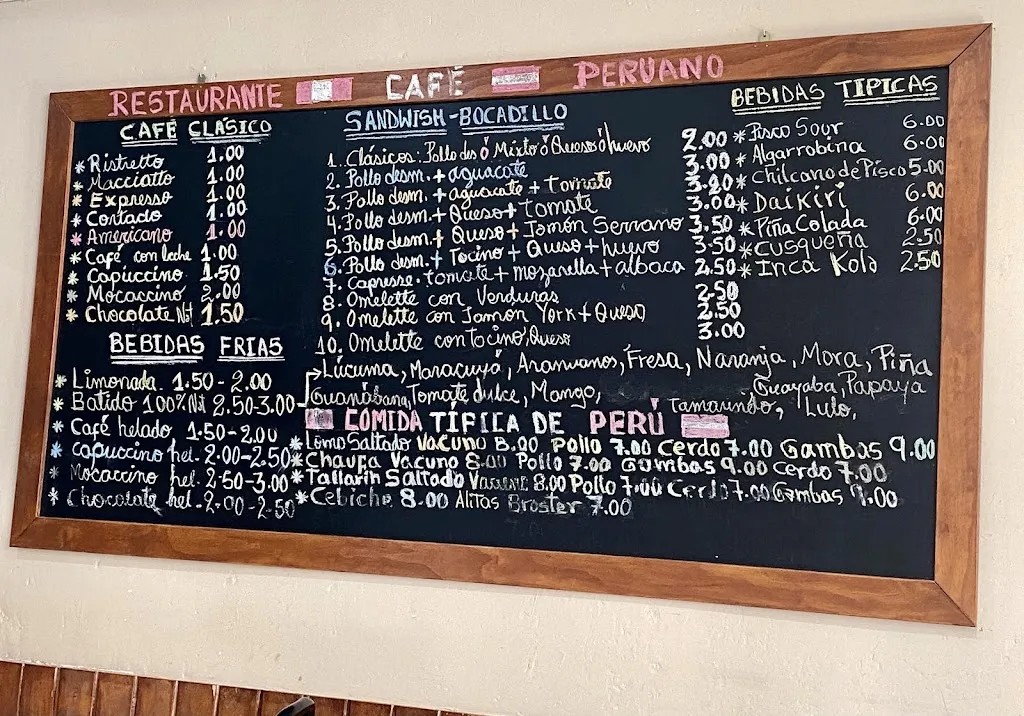 RESTAURANTE CAFÉ PERUANO
CAFÉ CLÁSICO
* Ristretto 1.00
* Macciatto 1.00
* Expresso 1.00
* Cortado 1.00
* Americano 1.00
* Café con leche 1.00
* Capuccino 1.50
* Mocaccino 2.00
* Chocolate Nat 1.50
BEBIDAS FRIAS
* Limonada 1.50-2.00
* Batido 100% Nat 2.50-3.00
* Café helado 1.50-2.00
* Capuccino hel. 2.00-2.50
* Mocaccino hel. 2.50-3.00
* Chocolate hel. 2.00-2.50
SANDWISH-BOCADILLO
1. Clásicos: Pollo des ó Mixto ó Queso ó huevo 2.00
2. Pollo desm. + aguacate 3.00
3. Pollo desm. + aguacate + Tomate 3.20
4. Pollo desm. + Queso + Tomate 3.00
5. Pollo desm. + Queso + Jamon Serrano 3.50
6. Pollo desm. + Tocino + Queso + huevo 3.50
7. Capresse. tomate + mozarella + albaca 2.50
8. Omelette con Verduras 2.50
9. Omelette con Jamon York + Queso 2.50
10. Omelette con Tocino, Queso 3.00
BEBIDAS TIPICAS
* Pisco Sour 6.00
* Algarrobina 6.00
* Chilcano de Pisco 5.00
* Daikiri 6.00
* Piña Colada 6.00
* Cusqueña 2.50
* Inca Kola 2.50
Lúcuma, Maracuyá, Aranvanos, Fresa, Naranja, Mora, Piña
Guanábana, Tomate dulce, Mango, Tamarindo, Lulo, Guayaba, Papaya
COMIDA TÍPICA DE PERÚ
* Lomo Saltado Vacuno 8.00 Pollo 7.00 Cerdo 7.00 Gambas 9.00
* Chaufa Vacuno 8.00 Pollo 7.00 Gambas 9.00 Cerdo 7.00
* Tallarin Saltado Vacuno 8.00 Pollo 7.00 Cerdo 7.00 Gambas 9.00
* Cebiche 8.00 Alitas Broster 7.00